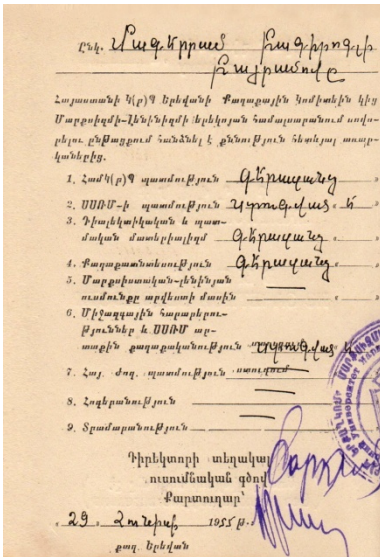 Ընկ. Մագերրամ Բագիրօղլի
Բայրամովը
Հայաստանի Կ(ր)Պ Երեվանի Քաղաքային Կոմիտեին կից
Մարքսիզմի-Լենինիզմի երեկոյան համալսարանում սովո-
րելու ընթացքում հանձնել է քննություն հետևյալ առար-
կաներից.
1. Համկ(բ)Պ պատմություն գերազանց
2. ՍՍՌՄ-ի պատմություն Ստուգված է
3. Դիալեկտիկական և պատ-
մական մատերիալիզմ Գերազանց
4. Քաղաքատնտեսություն Գերազանց
5. Մարքսիստական-լենինյան
ուսմունքը արվեստի մասին —
6. Միջազգային հարաբերու-
թյուններ և ՍՍՌՄ ար-
տաքին քաղաքականություն Ստուգված է
7. Հայ. ժող. պատմություն ստուգում —
8. Հոգեբանություն —
9. Տրամաբանություն —
Դիրեկտորի տեղակալ
ուսումնական գծով
Քարտուղար՝
„ 29 „ Հունիսի 1955 թ.
քաղ. Երեվան